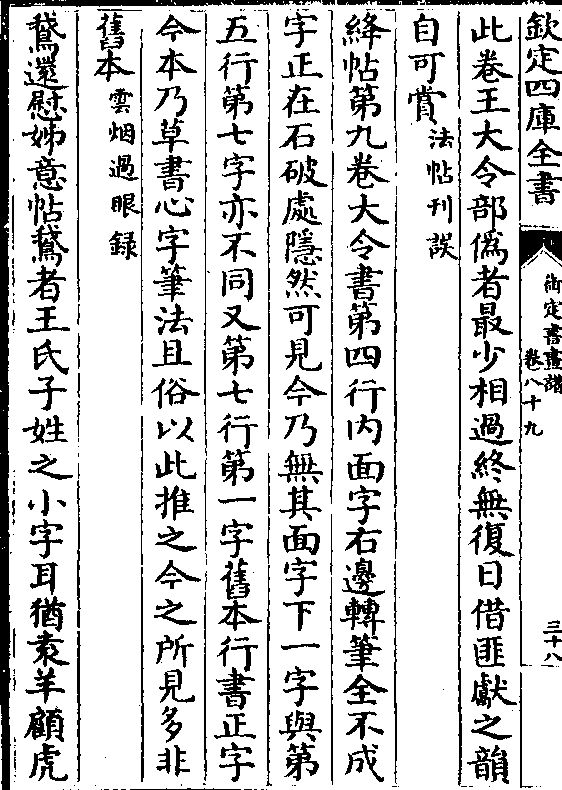 欽定四庫全書
御定書畫譜
卷八十九
三十八
此卷王大令部僞者最少相過終無復日借匪獻之韻
自可賞法帖刊誤
絳帖第九卷大令書第四行内面字右邊轉筆全不成
字正在石破處隱然可見今乃無其面字下一字與第
五行第七字亦不同又第七行第一字舊本行書正字
今本乃草書心字筆法且俗以此推之今之所見多非
舊本雲烟過眼録
鵞還慰姊意帖鵞者王氏子姓之小字耳猶袁羊顧虎